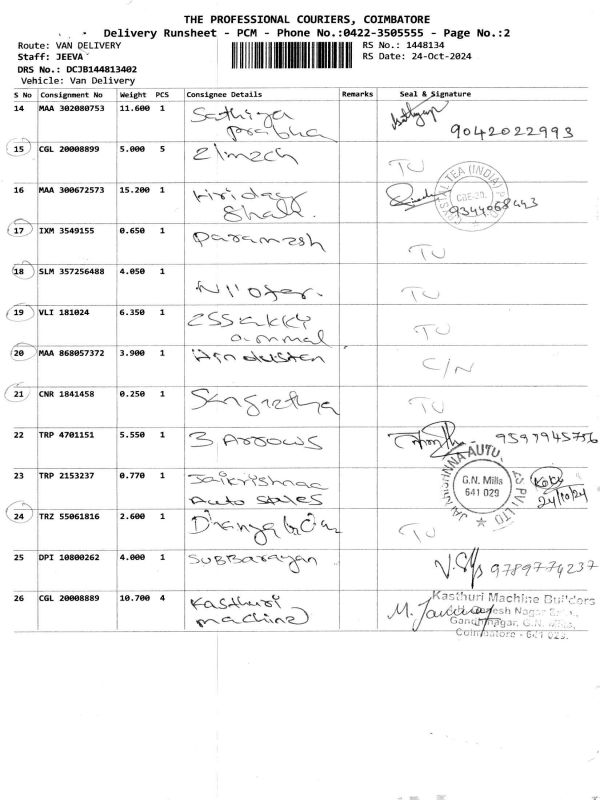 THE PROFESSIONAL COURIERS, COIMBATORE
Delivery Runsheet - PCM - Phone No.:0422-3505555 - Page No.:2
Route: VAN DELIVERY RS No.: 1448134
Staff: JEEVA RS Date: 24-Oct-2024
DRS No.: DCJB144813402
Vehicle: Van Delivery
S No Consignment No Weight PCS Consignee Details Remarks Seal & Signature
14 MAA 302080753 11.600 1 Sathiya
Prabha 9042022993
15 CGL 20008899 5.000 5 Elmech TU
16 MAA 300672573 15.200 1 Hriday
Shah. 9344068443
CRYSTAL TEA (INDIA) P LTD
CBE-29.
17 IXM 3549155 0.650 1 Paramesh TU
18 SLM 357256488 4.050 1 Nilofer. TU
19 VLI 181024 6.350 1 Essakky
ammal TU
20 MAA 868057372 3.900 1 Hindustan C/N
21 CNR 1841458 0.250 1 Sangeetha TU
22 TRP 4701151 5.550 1 3 Arrows 9597945756
23 TRP 2153237 0.770 1 Jaikrishnaa
Auto Sales
G.N. Mills
641 029
24/10/24
24 TRZ 55061816 2.600 1 TU
25 DPI 10800262 4.000 1 Subbarayan 9789774237
26 CGL 20008889 10.700 4 Kasthuri
machine
Kasthuri Machine Builders
Gandhinagar, G.N. Mills,
Coimbatore - 641 029.